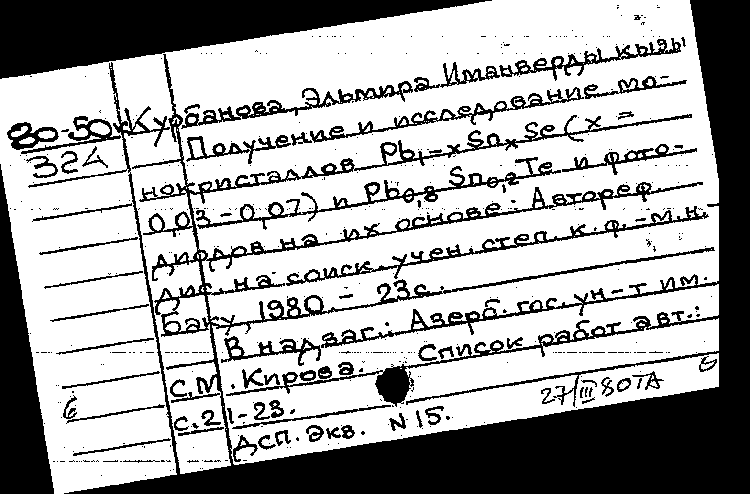 80-50к Курбанова, Эльмира Иманверды кызы
324 Получение и исследование мо-
нокристаллов Pb₁₋ₓSnₓSe (x =
0,03-0,07) и Pb₀,₈Sn₀,₂Te и фото-
диодов на их основе: Автореф.
дис. на соиск. учен. степ. к. ф.-м.н.-
Баку, 1980. - 23с.
В надзаг.: Азерб. гос. ун-т им.
С.М. Кирова. Список работ авт.:
с.21-23.
ДСП. Экв. N 15.
27/III 80
6